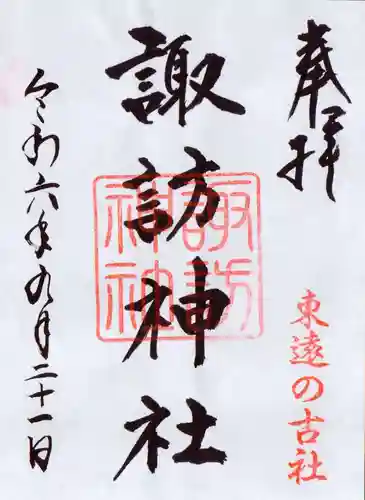 奉拝
東遠の古社
諏訪神社
諏訪神社
令和六年九月二十一日